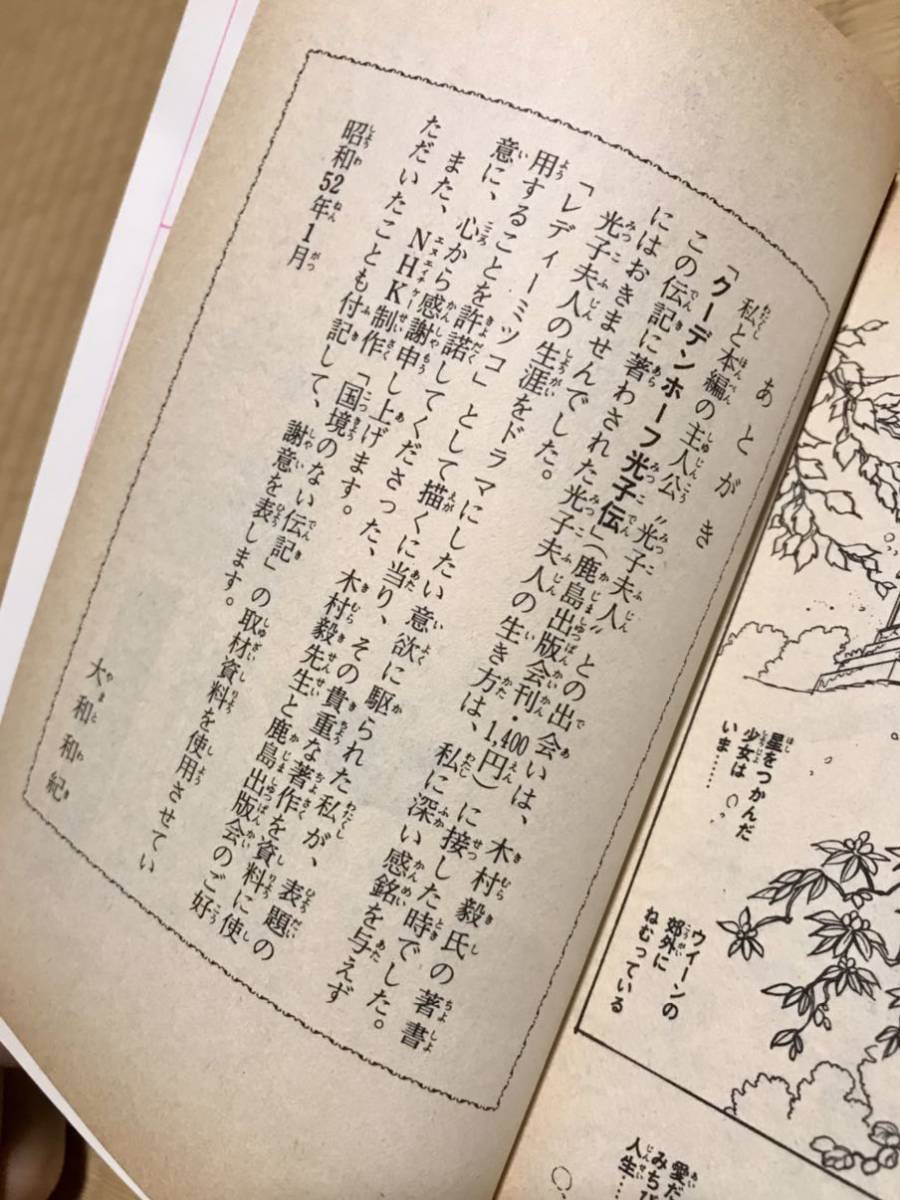 星をつかんだ
少女は
いま……
ウィーンの
郊外に
ねむっている
あとがき
私と本編の主人公〝光子夫人〟との出会いは、木村毅氏の著書
「クーデンホーフ光子伝」(鹿島出版会刊・1,400円)に接した時でした。
この伝記に著わされた光子夫人の生き方は、私に深い感銘を与えず
にはおきませんでした。
光子夫人の生涯をドラマにしたい意欲に駆られた私が、表題の
「レディーミツコ」として描くに当り、その貴重な著作を資料に使
用することを許諾してくださった、木村毅先生と鹿島出版会のご好
意に、心から感謝申し上げます。
また、NHK制作「国境のない伝記」の取材資料を使用させてい
ただいたことも付記して、謝意を表します。
昭和52年1月
大和和紀